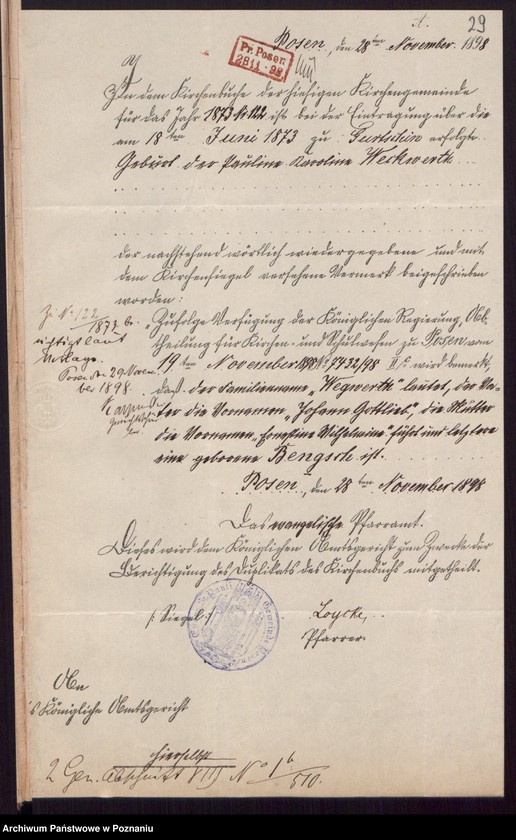 A.
29
Posen, den 28ten November 1898
Pr. Posen
28 11 98
In dem Kirchenbuche der hiesigen Kirchengemeinde
für das Jahr 1873 No 122 ist bei der Eintragung über die
am 18ten Juni 1873 zu Gurtschin erfolgte
Geburt der Pauline Karoline Weckwerth
der nachstehend wörtlich wiedergegebene und mit
dem Kirchensiegel versehene Vermerk beigeschrieben
worden:
"Zufolge Verfügung der Königlichen Regierung, Ab-
theilung für Kirchen- und Schulwesen zu Posen vom
19ten November 1898 7432/98 II wird bemerkt,
daß der Familienname "Wegwerth" lautet, der Va-
ter die Vornamen "Johann Gottlieb", die Mutter
die Vornamen "Ernestine Wilhelmine" führt und letztere
eine geborene Bengsch ist.
Posen, den 28ten November 1898
Das evangelische Pfarramt.
Dieses wird dem Königlichen Amtsgericht zum Zwecke der
Berichtigung des Duplikats des Kirchenbuchs mitgetheilt.
/: Siegel :/
Loycke,
Pfarrer.
Zu No 122
1873 be-
richtigt laut
Anlage.
Posen den 29. Novem-
ber 1898.
An
das Königliche Amtsgericht
hierselbst
2 Gen. Abschnitt VIII No 1b
510.
Archiwum Państwowe w Poznaniu